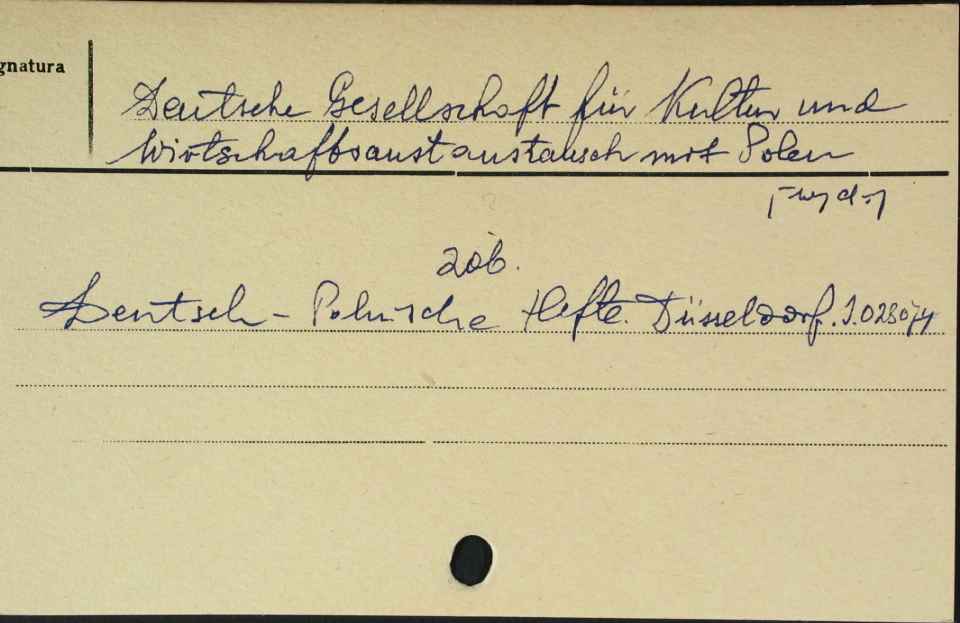 gnatura
Deutsche Gesellschaft für Kultur und
Wirtschaftsaustaustausch mit Polen
zob.
Deutsch-Polnische Hefte. Düsseldorf.